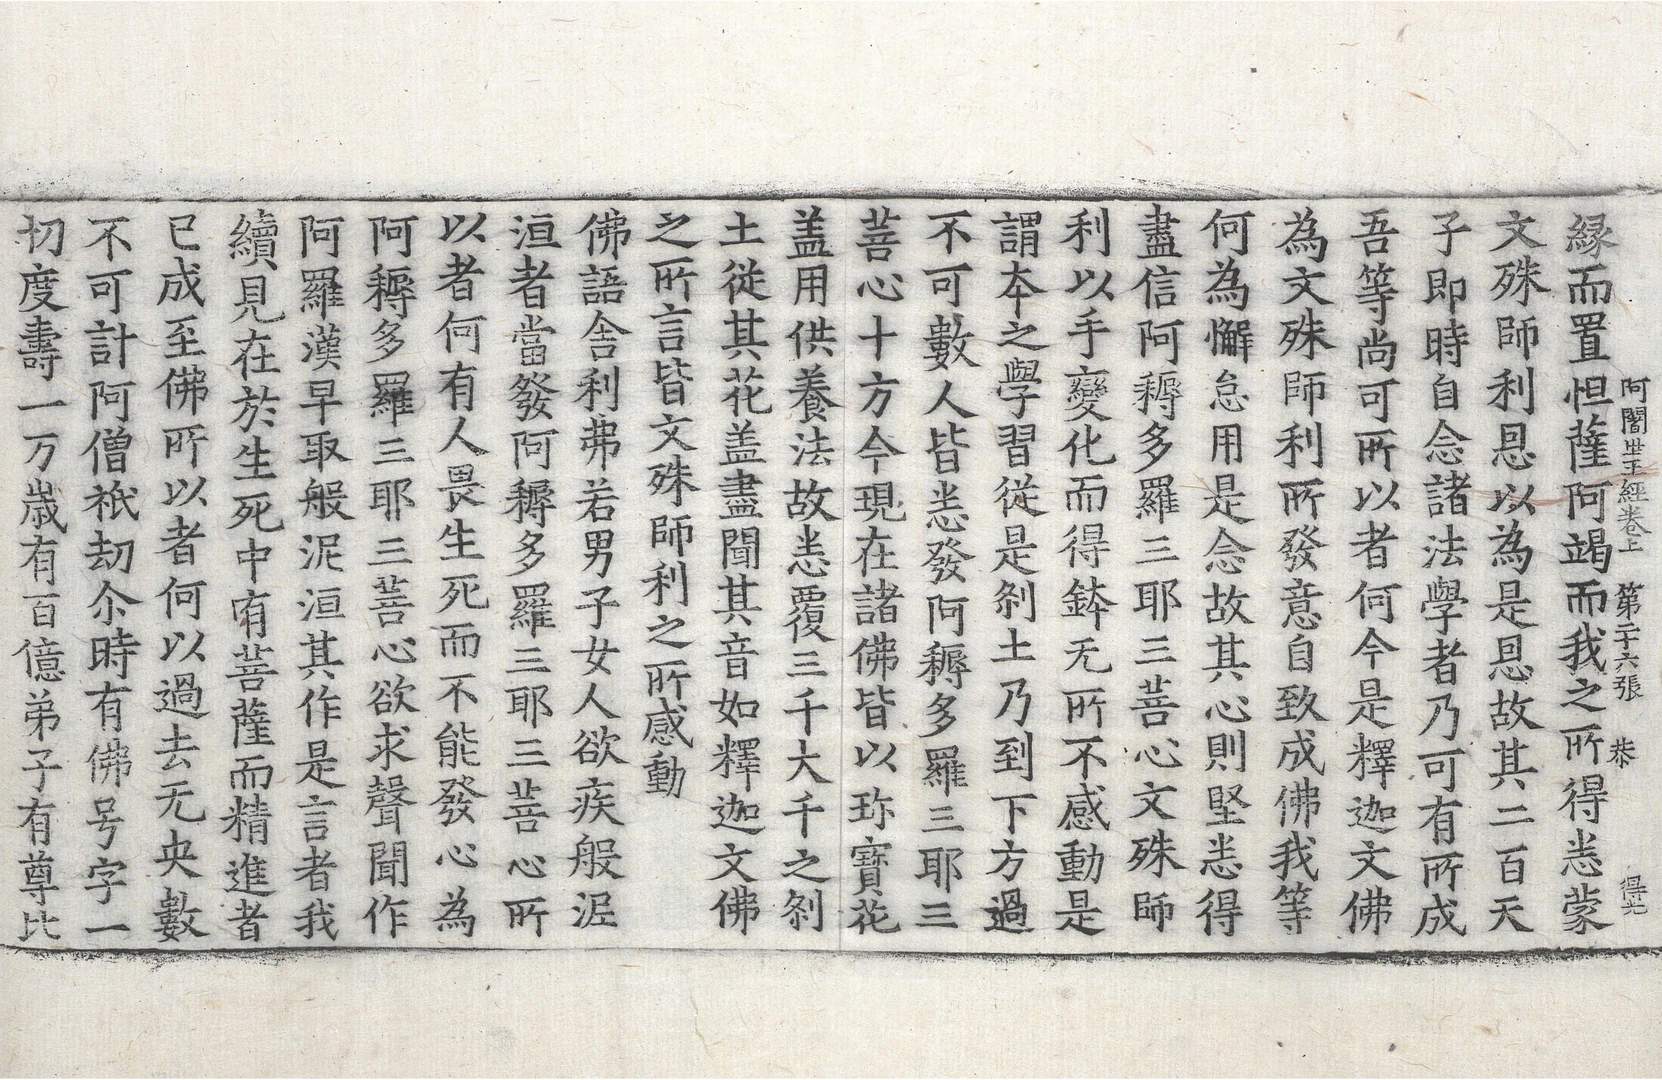 阿闍世王經卷上　第二十六張　恭　得光
縁而置怛薩阿竭而我之所得悉蒙
文殊師利恩以為是恩故其二百天
子即時自念諸法學者乃可有所成
吾等尚可所以者何今是釋迦文佛
為文殊師利所發意自致成佛我等
何為懈怠用是念故其心則堅悉得
盡信阿耨多羅三耶三菩心文殊師
利以手變化而得鉢无所不感動是
謂夲之學習從是剎土乃到下方過
不可數人皆悉發阿耨多羅三耶三
菩心十方今現在諸佛皆以珎寶花
盖用供養法故悉覆三千大千之剎
土從其花盖盡聞其音如釋迦文佛
之所言皆文殊師利之所感動
佛語舍利弗若男子女人欲疾般泥
洹者當發阿耨多羅三耶三菩心所
以者何有人畏生死而不能發心為
阿耨多羅三耶三菩心欲求聲聞作
阿羅漢早取般泥洹其作是言者我
續見在於生死中有菩薩而精進者
已成至佛所以者何以過去无央數
不可計阿僧祇劫尒時有佛号字一
切度壽一万歲有百億弟子有尊比